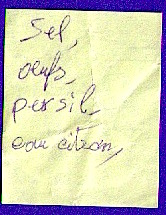 Sel,
oeufs,
persil
eau citron,